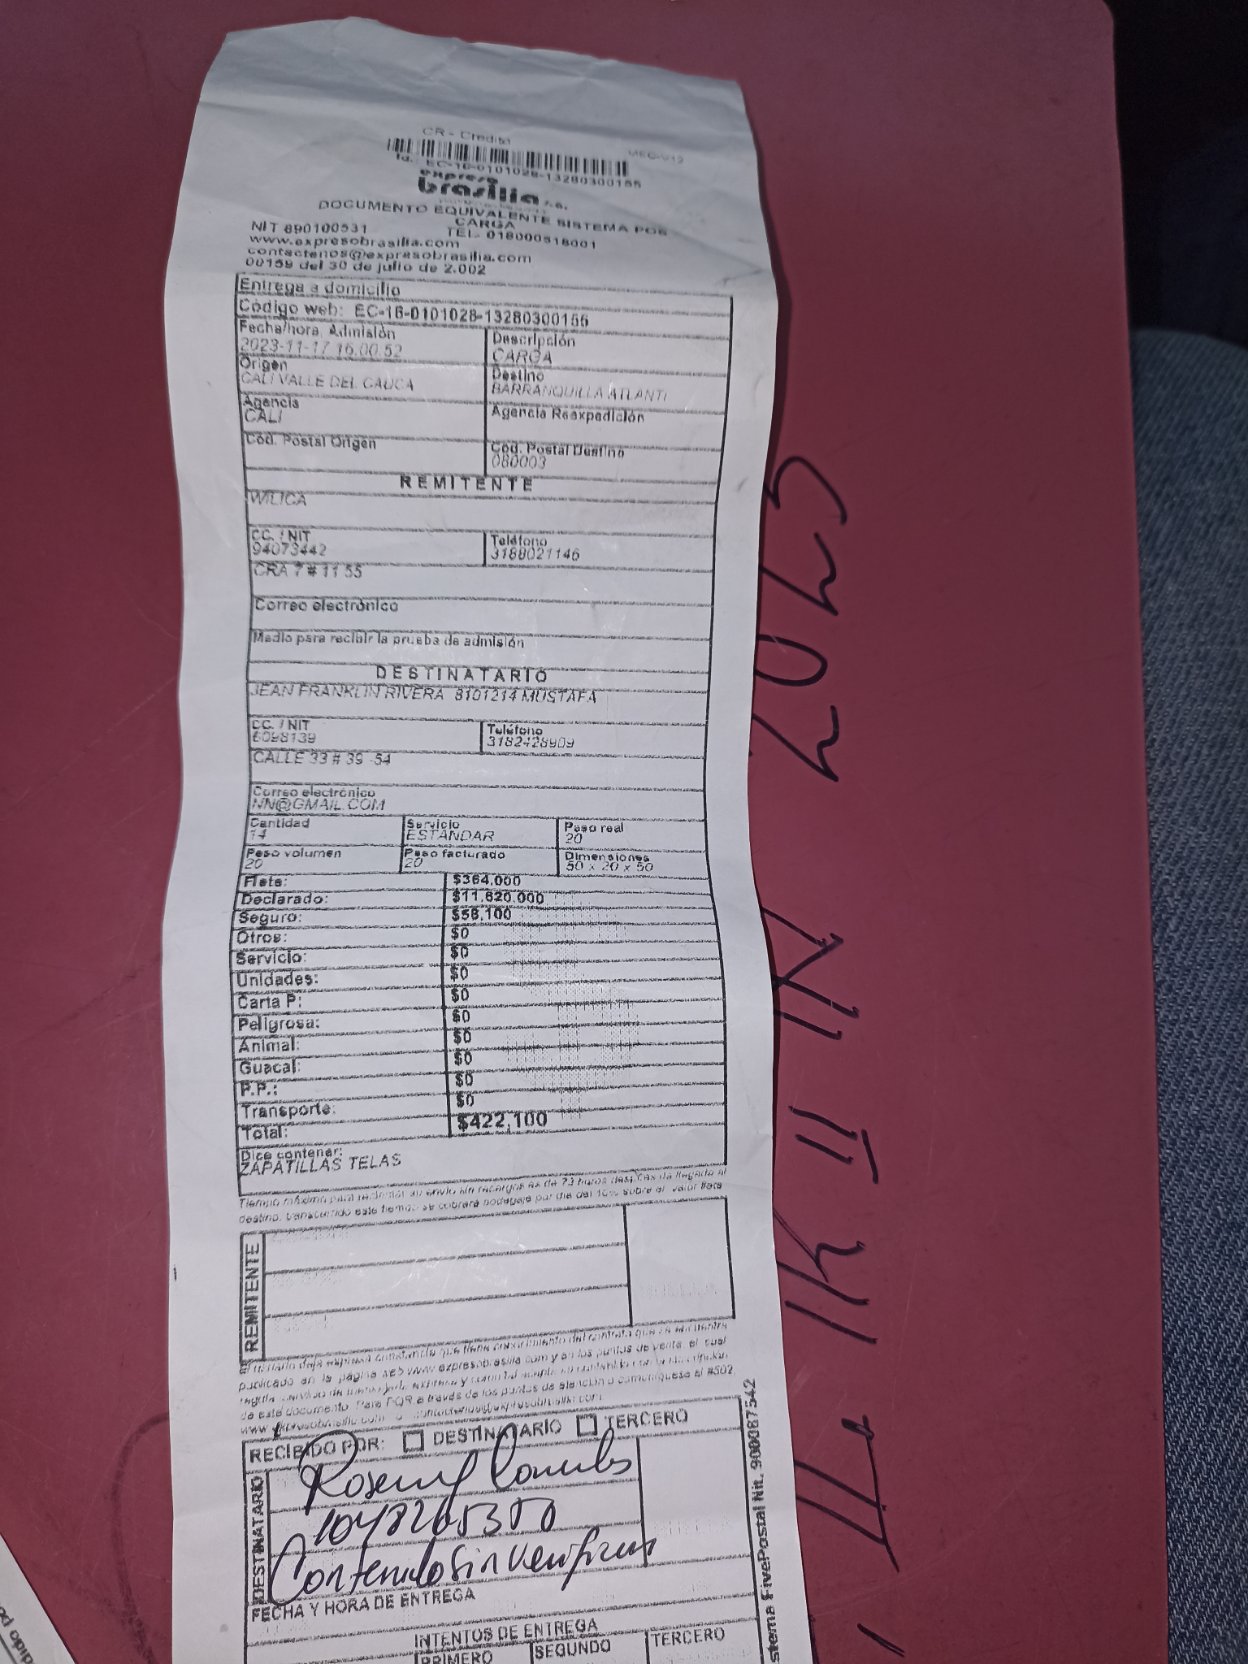 CR - Credito
Id.: EC-16-0101028-13280300155
expreso
brasilia s.a.
DOCUMENTO EQUIVALENTE SISTEMA POS
CARGA
NIT 890100531
TEL- 018000518001
www.expresobrasilia.com
contactenos@expresobrasilia.com
00159 del 30 de julio de 2.002
Entrega a domicilio
Código web: EC-16-0101028-13280300155
Fecha/hora. Admisión
2023-11-17 16.00.52
Descripción
CARGA
Origen
CALI VALLE DEL CAUCA
Destino
BARRANQUILLA ATLANTI
Agencia
CALI
Agencia Reexpedición
Cód. Postal Origen
Cód. Postal Destino
080003
REMITENTE
WILICA
CC. / NIT
94073442
Teléfono
3188021146
CRA 7 # 11 55
Correo electrónico
Medio para recibir la prueba de admisión
DESTINATARIO
JEAN FRANKLIN RIVERA 8101214 MUSTAFA
CC. / NIT
6098139
Teléfono
3182428909
CALLE 33 # 39 -54
Correo electrónico
NN@GMAIL.COM
Cantidad
14
Servicio
ESTANDAR
Peso real
20
Peso volumen
20
Peso facturado
20
Dimensiones
50 x 20 x 50
Flete: $364,000
Declarado: $11,620,000
Seguro: $58,100
Otros: $0
Servicio: $0
Unidades: $0
Carta P: $0
Peligrosa: $0
Animal: $0
Guacal: $0
P.P.: $0
Transporte: $0
Total: $422,100
Dice contener:
ZAPATILLAS TELAS
Tiempo máximo para reclamar su envío sin recargos es de 73 horas después de llegado al
destino, transcurrido este tiempo se cobrará bodegaje por día del 10% sobre el valor flete
REMITENTE
El usuario deja expresa constancia que tiene conocimiento del contrato que se encuentra
publicado en la página web www.expresobrasilia.com y en los puntos de venta, el cual
de este documento. Para PQR a través de los puntos de atención o comuníquese al #502
RECIBIDO POR: DESTINATARIO TERCERO
DESTINATARIO
Contenido sin verificar
FECHA Y HORA DE ENTREGA
INTENTOS DE ENTREGA
PRIMERO SEGUNDO TERCERO
stema FivePostal Nit. 900087542